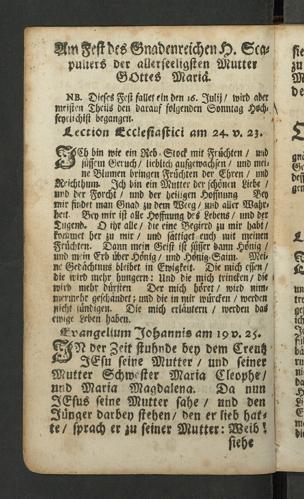 Am Fest des Gnadenreichen H. Sca-
puliers der allerseeligsten Mutter
GOttes Mariä.
NB. Dieses Fest fallet ein den 16. Julij / wird aber
meisten Theils den darauf folgenden Sonntag Hoch-
feyerlichist begangen.
Lection Ecclesiastici am 24. v. 23.
ICh bin wie ein Reb-Stock mit Früchten / und
süssem Geruch / lieblich aufgewachsen / und mei-
ne Blumen bringen Früchten der Ehren / und
Reichthum. Ich bin ein Mutter der schönen Liebe /
und der Forcht / und der heiligen Hoffnung. Bey
mir findet man Gnad zu dem Weeg / und aller Wahr-
heit. Bey mir ist alle Hoffnung des Lebens / und der
Tugend. O ihr alle / die eine Begierd zu mir habt /
kommet her zu mir / und sättiget euch mit meinen
Früchten. Dann mein Geist ist süsser dann Hönig /
und mein Erb über Hönig / und Hönig-Saim. Mei-
ne Gedächtnus bleibet in Ewigkeit. Die mich essen /
die wird mehr hungern: Und die mich trincken / die
wird mehr dürsten. Der mich höret / wird nim-
mermehr geschändet; und die in mir würcken / werden
nicht sündigen. Die mich erläutern / werden das
ewige Leben haben.
Evangelium Johannis am 19 v. 25.
IN der Zeit stuhnde bey dem Creutz
JEsu seine Mutter / und seiner
Mutter Schwester Maria Cleophe /
und Maria Magdalena. Da nun
JEsus seine Mutter sahe / und den
Jünger darbey stehen / den er lieb hat-
te / sprach er zu seiner Mutter: Weib!
siehe